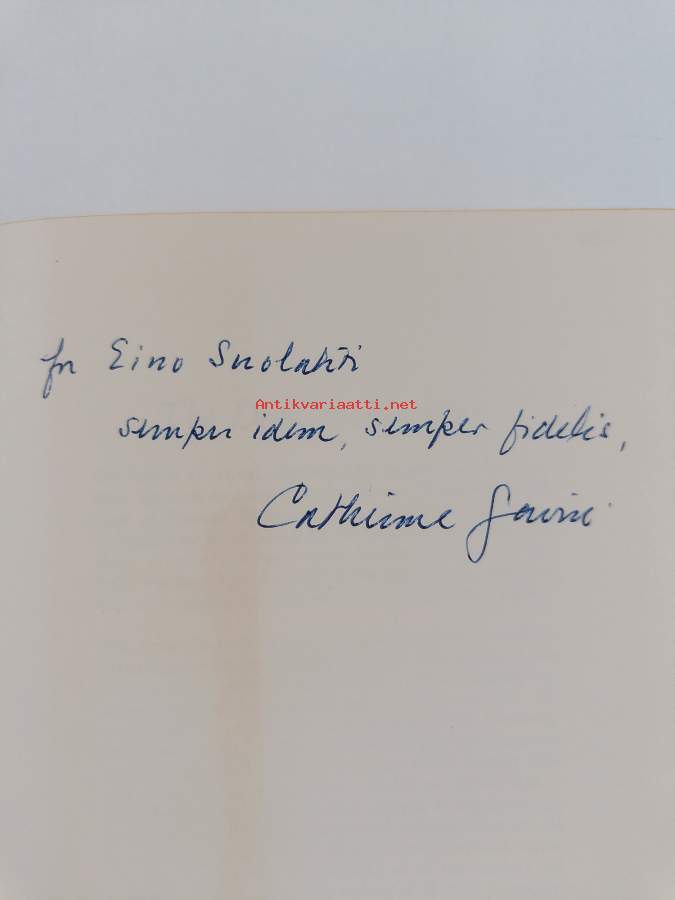 for Eino Suolahti
Antikvariaatti.net
semper idem, semper fidelis,
Catherine Gavin